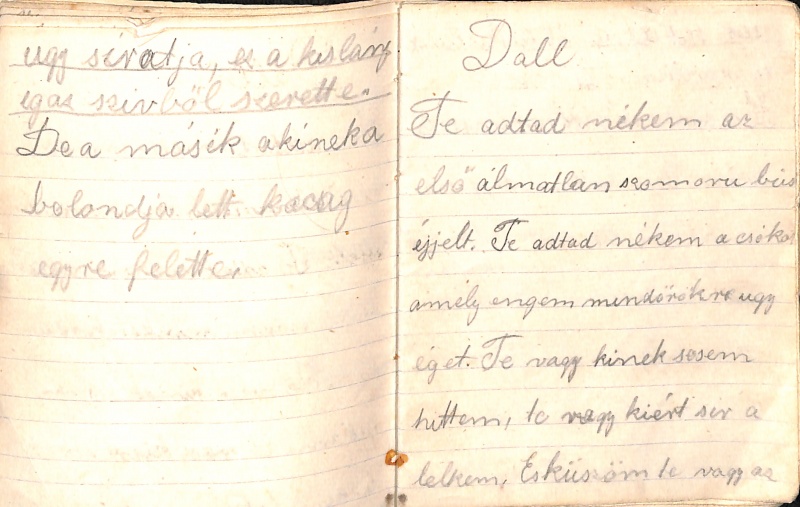 ugy siratja, es a kislány
igaz szivből szerette.
De a másik akineka
bolondja lett kacag
egyre felette.
Dall
Te adtad nékem az
első álmatlan szomoru bús
éjjelt. Te adtad nékem a csókot
amély engem mindörökre ugy
éget. Te vagy kinek sosem
hittem, te vagy kiért sir a
lelkem, Esküszöm te vagy az